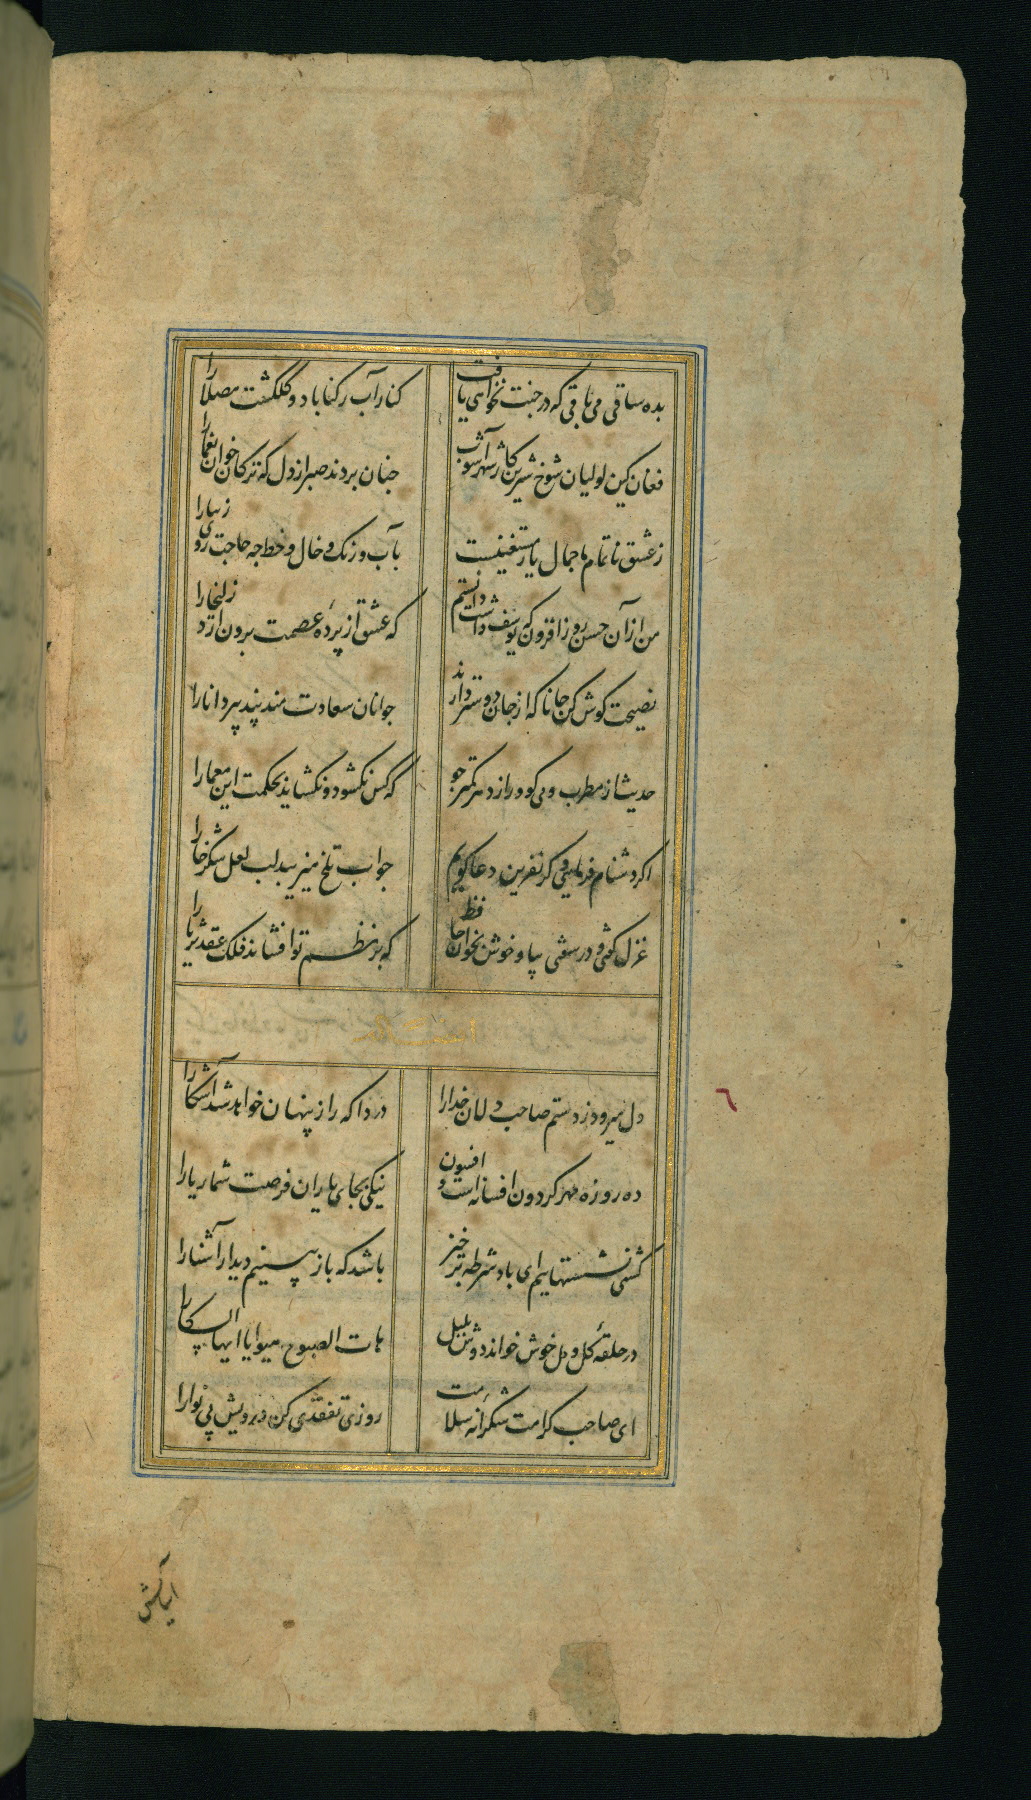 بده ساقی می باقی که در جنت نخواهی یافت کنار آب رکناباد و گلگشت مصلا را
فغان کین لولیان شوخ شیرین کار شهر آشوب چنان بردند صبر از دل که ترکان خوان یغما را
ز عشق ناتمام ما جمال یار مستغنیست بآب و رنگ و خال و خط چه حاجت روی زیبا را
من از آن حسن روزافزون که یوسف داشت دانستم که عشق از پردهٔ عصمت برون آرد زلیخا را
نصیحت گوش کن جانا که از جان دوستتر دارند جوانان سعادتمند پند پیر دانا را
حدیث از مطرب و می گو و راز دهر کمتر جو که کس نگشود و نگشاید بحکمت این معما را
اگر دشنام فرمایی و گر نفرین دعا گویم جواب تلخ میزیبد لب لعل شکرخا را
غزل گفتی و در سفتی بیا و خوش بخوان حافظ که بر نظم تو افشاند فلک عقد ثریا را
دل میرود ز دستم صاحب دلان خدا را دردا که راز پنهان خواهد شد آشکارا
ده روزه مهر گردون افسانه است و افسون نیکی بجای یاران فرصت شمار یارا
کشتی نشستهایم ای باد شرطه برخیز باشد که باز بینیم دیدار آشنا را
در حلقهٔ گل و مل خوش خواند دوش بلبل هات الصبوح هیوا یا ایها السکارا
ای صاحب کرامت شکرانه سلامت روزی تفقدی کن درویش بی نوا را
٦